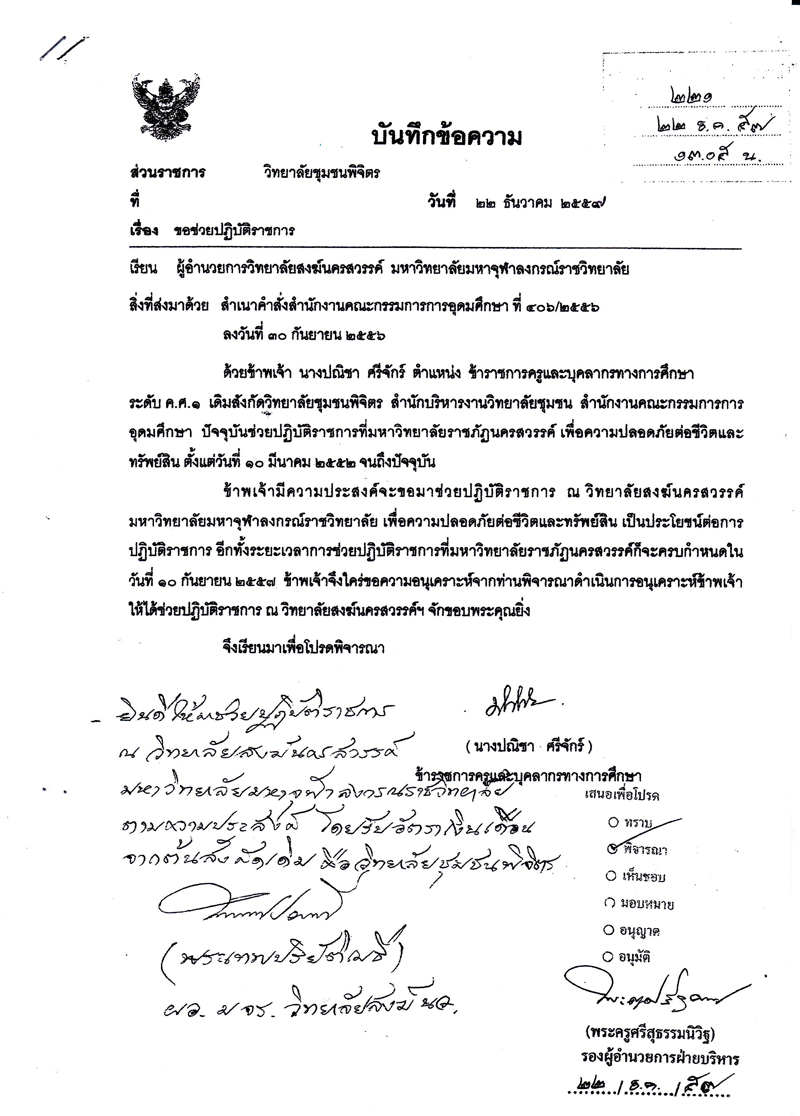 ๒๒๑
๒๒ ธ.ค. ๕๗
๑๓.๐๕ น.
บันทึกข้อความ
ส่วนราชการ วิทยาลัยชุมชนพิจิตร
ที่ วันที่ ๒๒ ธันวาคม ๒๕๕๗
เรื่อง ขอช่วยปฏิบัติราชการ
เรียน ผู้อำนวยการวิทยาลัยสงฆ์นครสวรรค์ มหาวิทยาลัยมหาจุฬาลงกรณ์ราชวิทยาลัย
สิ่งที่ส่งมาด้วย สำเนาคำสั่งสำนักงานคณะกรรมการการอุดมศึกษา ที่ ๔๐๖/๒๕๕๖
ลงวันที่ ๓๐ กันยายน ๒๕๕๖
ด้วยข้าพเจ้า นางปณิชา ศรีจักร์ ตำแหน่ง ข้าราชการครูและบุคลากรทางการศึกษา
ระดับ ค.ศ.๑ เดิมสังกัดวิทยาลัยชุมชนพิจิตร สำนักบริหารงานวิทยาลัยชุมชน สำนักงานคณะกรรมการการ
อุดมศึกษา ปัจจุบันช่วยปฏิบัติราชการที่มหาวิทยาลัยราชภัฏนครสวรรค์ เพื่อความปลอดภัยต่อชีวิตและ
ทรัพย์สิน ตั้งแต่วันที่ ๑๐ มีนาคม ๒๕๕๒ จนถึงปัจจุบัน
ข้าพเจ้ามีความประสงค์จะขอมาช่วยปฏิบัติราชการ ณ วิทยาลัยสงฆ์นครสวรรค์
มหาวิทยาลัยมหาจุฬาลงกรณ์ราชวิทยาลัย เพื่อความปลอดภัยต่อชีวิตและทรัพย์สิน เป็นประโยชน์ต่อการ
ปฏิบัติราชการ อีกทั้งระยะเวลาการช่วยปฏิบัติราชการที่มหาวิทยาลัยราชภัฏนครสวรรค์ก็จะครบกำหนดใน
วันที่ ๑๐ กันยายน ๒๕๕๗ ข้าพเจ้าจึงใคร่ขอความอนุเคราะห์จากท่านพิจารณาดำเนินการอนุเคราะห์ข้าพเจ้า
ให้ได้ช่วยปฏิบัติราชการ ณ วิทยาลัยสงฆ์นครสวรรค์ฯ จักขอบพระคุณยิ่ง
จึงเรียนมาเพื่อโปรดพิจารณา
(นางปณิชา ศรีจักร์)
ข้าราชการครูและบุคลากรทางการศึกษา
- ยินดีให้มาช่วยปฏิบัติราชการ
ณ วิทยาลัยสงฆ์นครสวรรค์
มหาวิทยาลัยมหาจุฬาลงกรณราชวิทยาลัย
ตามความประสงค์ โดยรับอัตราเงินเดือน
จากต้นสังกัดเดิม คือวิทยาลัยชุมชนพิจิตร
(พระเทพปริยัติเมธี)
ผอ. มจร. วิทยาลัยสงฆ์ นว.
เสนอเพื่อโปรด
ทราบ
พิจารณา
เห็นชอบ
มอบหมาย
อนุญาต
อนุมัติ
(พระครูศรีสุธรรมนิวิฐ)
รองผู้อำนวยการฝ่ายบริหาร
๒๒ / ธ.ค. / ๕๗